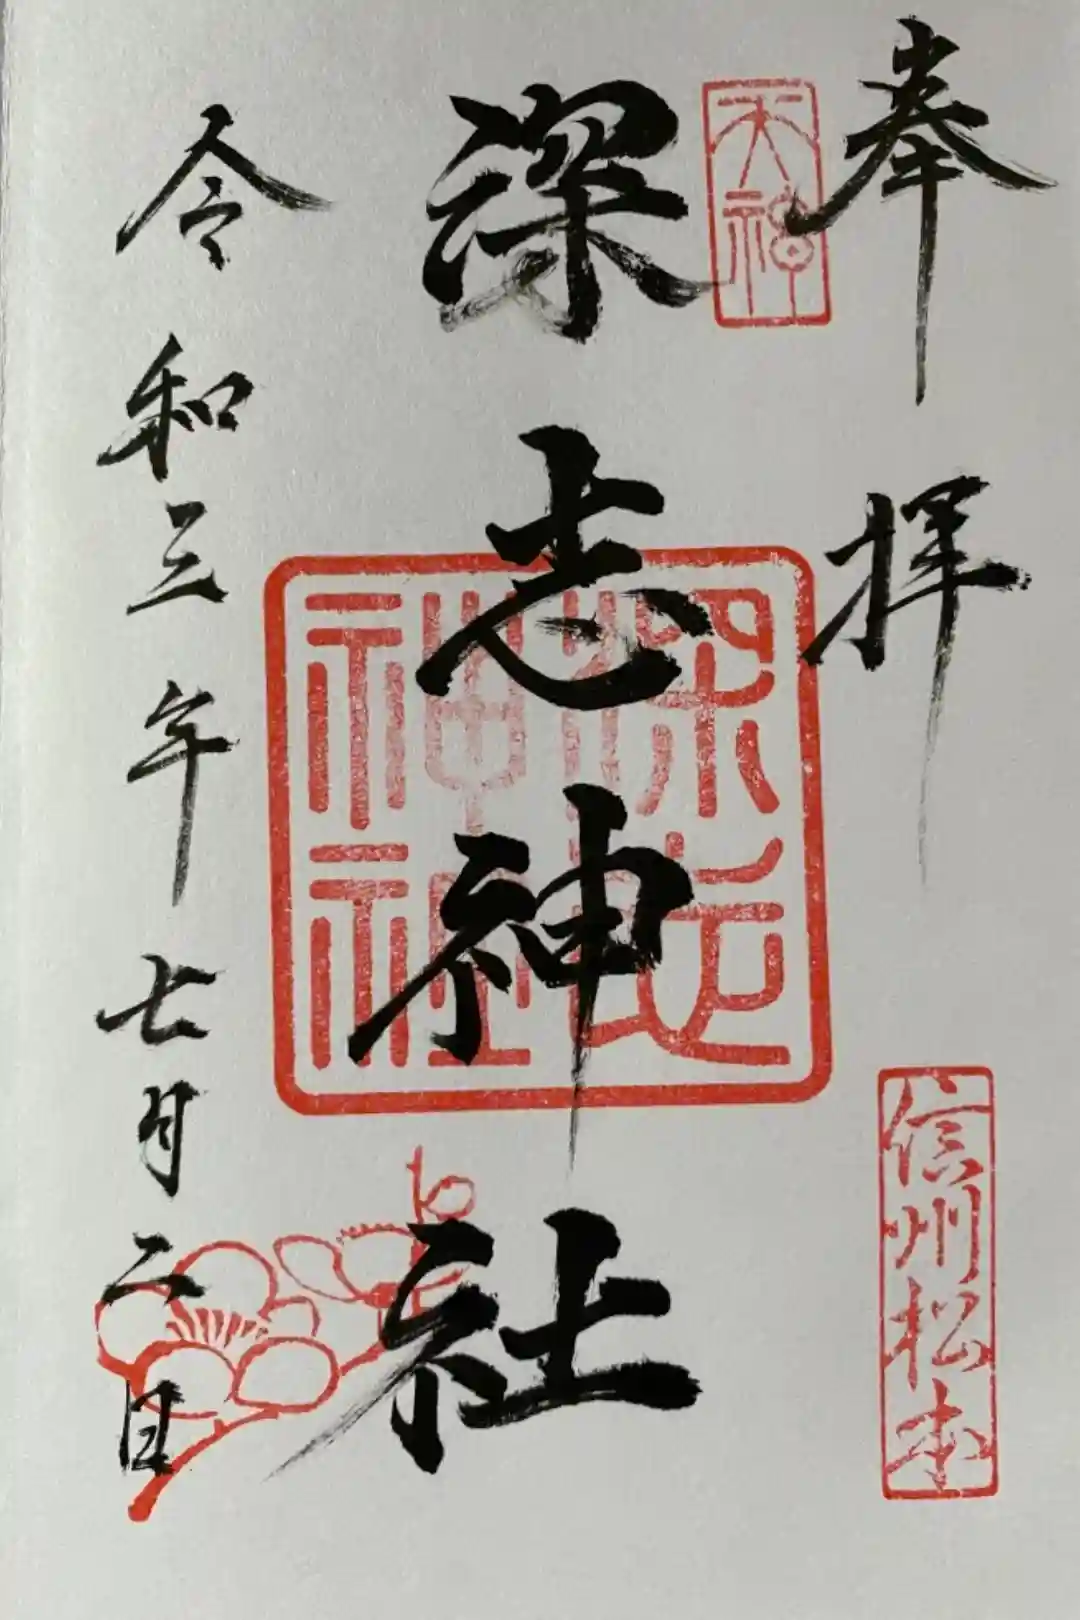 奉拝
天神
信州松本
深志神社
深志
神社
令和三年七月二日